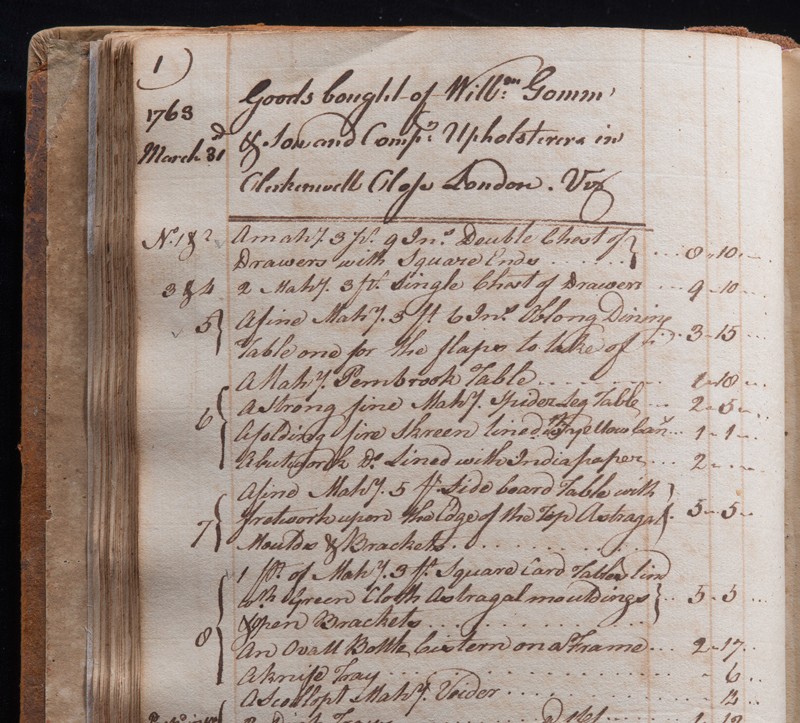 1
Goods bought of Will:m Gomm
1763
March 31 & Son and Comp:y Upholsterers in
Clerkenwell Close London. Viz
No. 1 & 2 A mahy. 3 ft. 9 Ins. Double Chest of
Drawers with Square Ends 8 " 10 "
3 & 4 2 Mahy. 3 ft. Single Chest of Drawers 9 " 10
5 A fine Mahy. 3 ft 6 Ins. Oblong Dining
Table one for the flaps to take of 3 " 15
A Mahy. Pembrook Table 1 " 18
6 A strong fine Mahy. Spider Leg Table 2 " 5
A folding fire Skreen lined yellow Can 1 " 1
A Do. Lined with India paper 2 "
A fine Mahy. 5 ft Side board Table with
7 fretwork upon the Edge of the Top Astragal 5 " 5
Mouldes & Brackets
1 pr. of Mahy. 3 ft. Square Card Tables lin'd
wth. Green Cloth Astragal mouldings 5 " 5
8 & open Brackets
An Ovall Bottle Cistern on a Frame 2 " 17
A knife Tray 6
A Scollopt Mahy. Voider 12